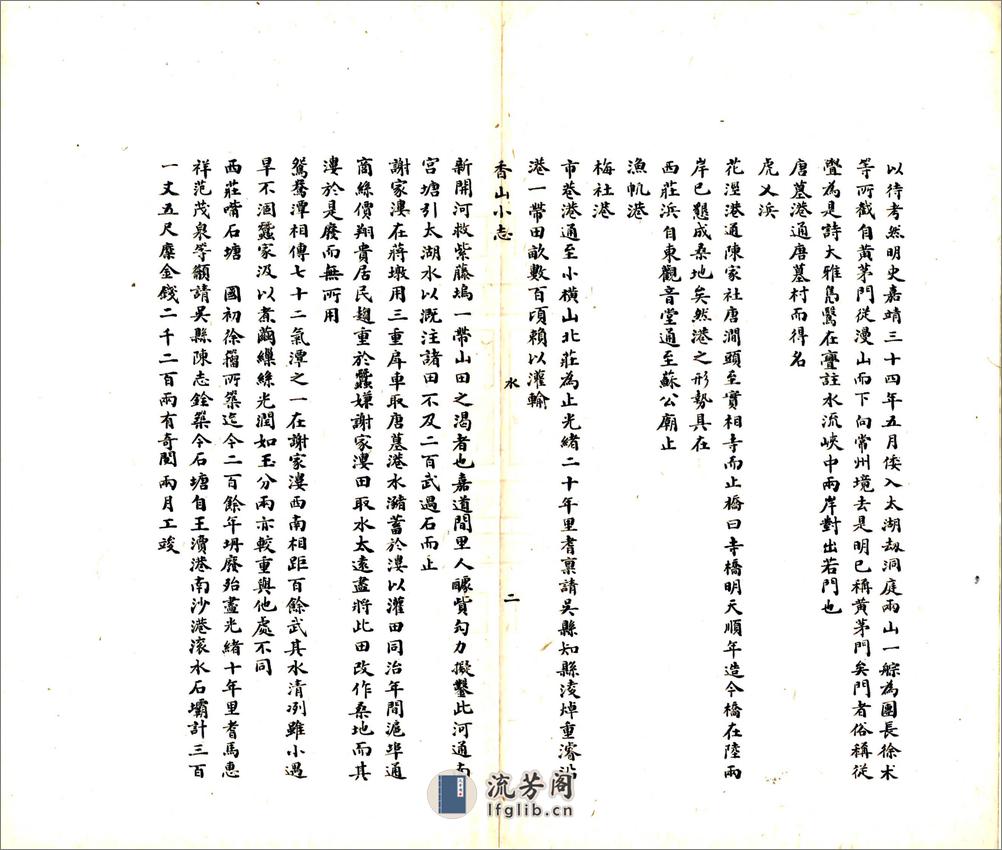 以待考然明史嘉靖三十四年五月倭入太湖刼洞庭兩山一艅為團長徐术
等所截自黃茅門從漫山而下向常州境去是明已稱黃茅門矣門者俗稱從
亹為是詩大雅鳧鷖在亹註水流峽中兩岸對出若門也
唐墓港通唐墓村而得名
虎乂浜
花涇港通陳家社唐澗頭至實相寺而止橋曰寺橋明天順年造今橋在陸兩
岸已懇成桑地矣然港之形勢具在
西莊浜自東觀音堂通至蘇公廟止
漁帆港
梅社港
市巷港通至小橫山北莊為止光緒二十年里耆稟請吳縣知縣淩焯重濬沿
港一帶田畝數百頃賴以灌輸
香山小志
水
二
新開河救紫藤塢一帶山田之渴者也嘉道間里人醵貲勾力擬鑿此河通南
宮塘引太湖水以溉注諸田不及二百武遇石而止
謝家漊在蔣墩用三重戽車取唐墓港水潴蓄於漊以灌田同治年間滬埠通
商絲價翔貴居民趨重於蠶嫌謝家漊田取水太遠盡將此田改作桑地而其
漊於是廢而無所用
鴛鴦潭相傳七十二氣潭之一在謝家漊西南相距百餘武其水清冽雖小遇
旱不涸蠶家汲以煮繭繅絲光潤如玉分兩亦較重與他處不同
西莊嘴石塘　國初徐籀所築迄今二百餘年坍廢殆盡光緒十年里耆馬惠
祥范茂泉等籲請吳縣陳志銓築今石塘自王瀆港南沙港滾水石壩計三百
一丈五尺糜金錢二千二百兩有奇閱兩月工竣
流芳閣
lfglib.cn